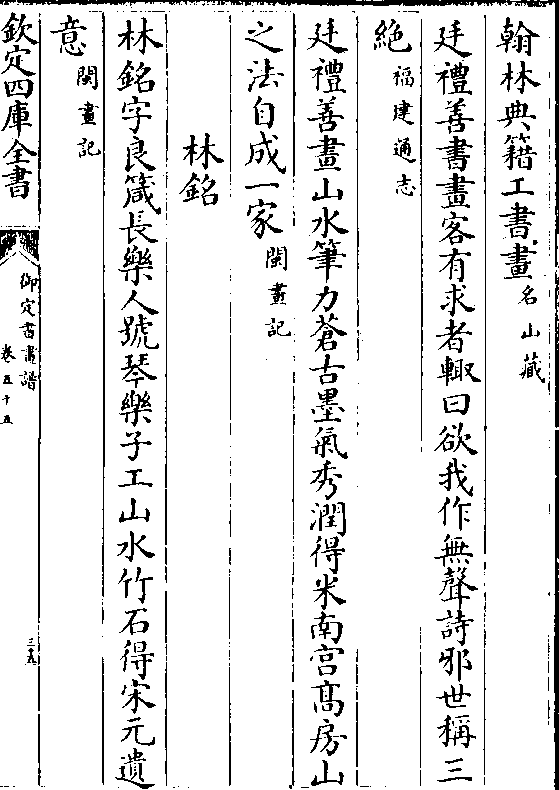 翰林典籍工書畫名山藏
廷禮善書畫客有求者輙曰欲我作無聲詩邪世稱三
絶福建通志
廷禮善畫山水筆力蒼古墨氣秀潤得米南宫髙房山
之法自成一家閩畫記
林銘
林銘字良箴長樂人號琴樂子工山水竹石得宋元遺
意閩畫記
欽定四庫全書
御定書畫譜
卷五十五
三五